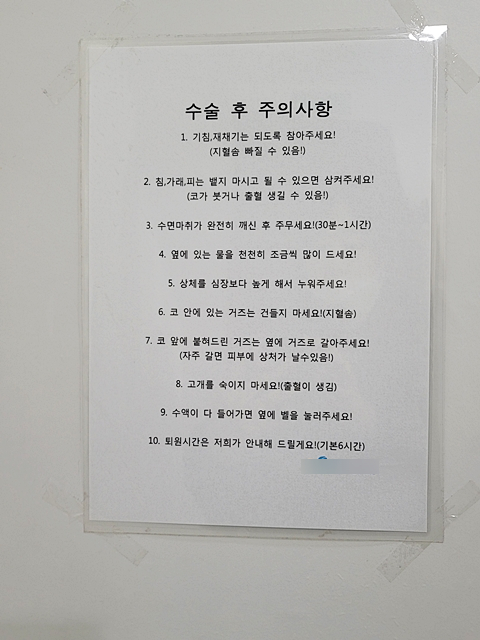 수술 후 주의사항
1. 기침,재채기는 되도록 참아주세요!
(지혈솜 빠질 수 있음!)
2. 침,가래,피는 뱉지 마시고 될 수 있으면 삼켜주세요!
(코가 붓거나 출혈 생길 수 있음!)
3. 수면마취가 완전히 깨신 후 주무세요!(30분~1시간)
4. 옆에 있는 물을 천천히 조금씩 많이 드세요!
5. 상체를 심장보다 높게 해서 누워주세요!
6. 코 안에 있는 거즈는 건들지 마세요!(지혈솜)
7. 코 앞에 붙혀드린 거즈는 옆에 거즈로 갈아주세요!
(자주 갈면 피부에 상처가 날수있음!)
8. 고개를 숙이지 마세요!(출혈이 생김)
9. 수액이 다 들어가면 옆에 벨을 눌러주세요!
10. 퇴원시간은 저희가 안내해 드릴게요!(기본6시간)